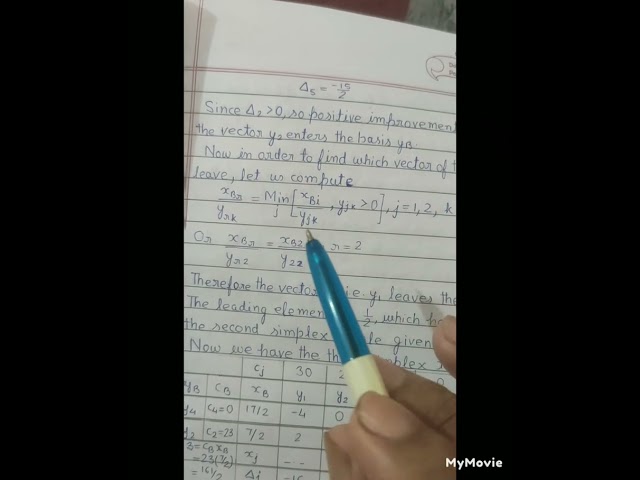 Δ₅ = -15/2
Since Δ₂ > 0, so positive improvement
the vector y₂ enters the basis yB.
Now in order to find which vector of t
leave, let us compute
xBr/yrk = Min j [xBi/yjk, yjk > 0], j = 1, 2, k
Or xBr/yr2 = xB2/y22 r = 2
Therefore the vector i.e. y₁ leaves the
The leading element 1/2, which
the second simplex given
Now we have the simplex
cj 30 2
yB cB xB y₁ y₂
y₄ c₄=0 17/2 -4 0
y₂ c₂=23 7/2 2
3 = cB xB xj - - -
= 23(7/2)
= 161/2 Δj -16
MyMovie